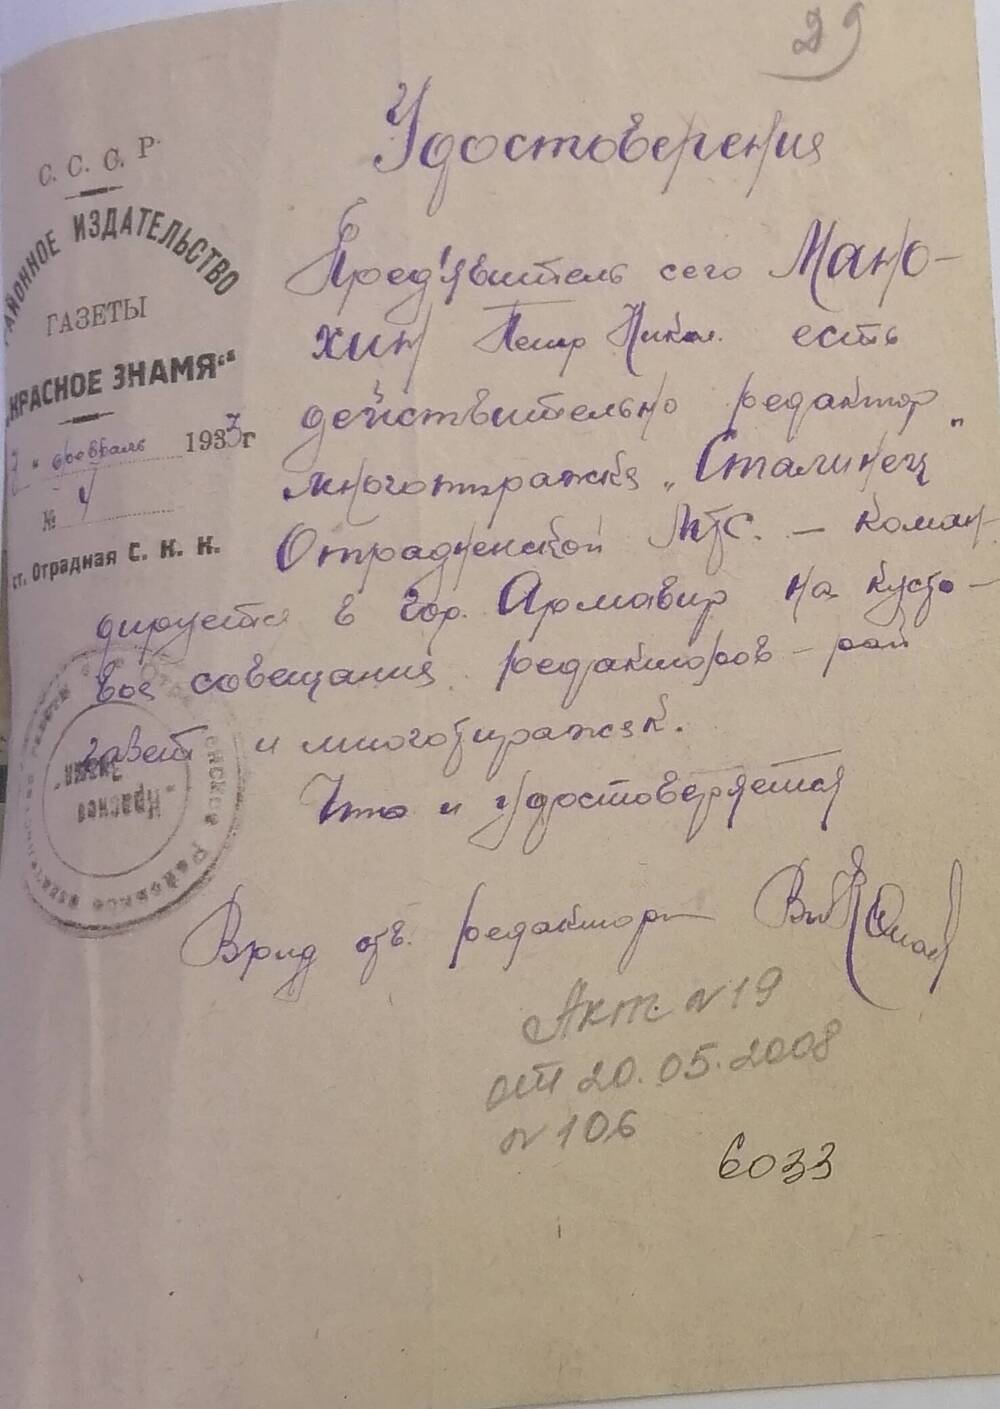 29
С. С. С. Р.
РАЙОННОЕ ИЗДАТЕЛЬСТВО
ГАЗЕТЫ
„КРАСНОЕ ЗНАМЯ“
7 " февраль 1933 г
№ 4
ст. Отрадная С. К. К.
Удостоверения
Пред'явитель сего Мано-
хин Петр Никол. есть
действительно редактор
многотиражка „Сталинец"
Отрадненской МТС. – коман-
дируется в гор. Армавир на кусто-
вое совещания редакторов – рай
газет и многотиражек.
Что и удостоверяется
Врид отв. редактора
"Красное
Знамя"
Акт N 19
от 20.05.2008
N 106
6033